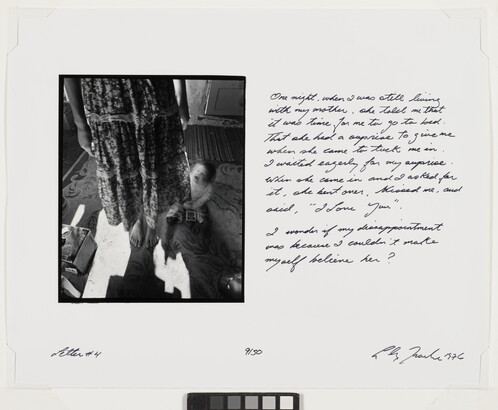 One night, when I was still living
with my mother, she told me that
it was time for me to go to bed.
That she had a surprise to give me
when she came to tuck me in.
I waited eagerly for my surprise.
When she came in and I asked for
it, she bent over, kissed me, and
said, "I Love You".
I wonder if my disappointment
was because I couldn't make
myself believe her?
Letter #4
9/50
1976